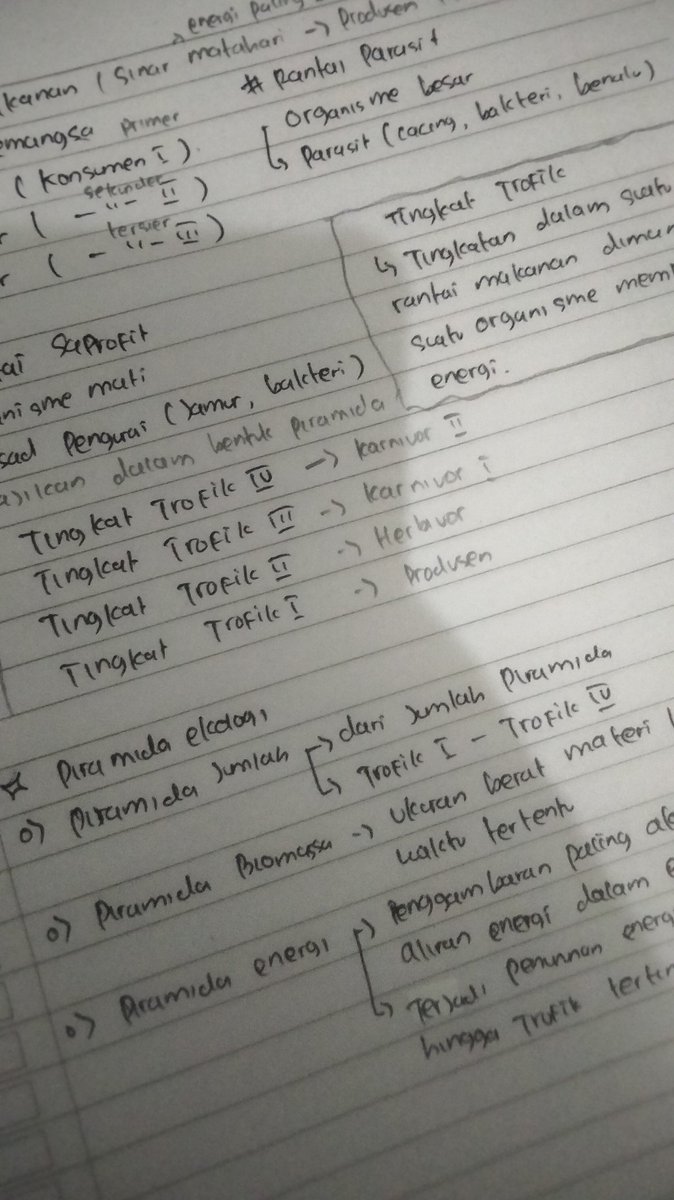 energi paling
kanan (Sinar matahari -> Produsen
# Rantai Parasit
emangsa primer
Organisme besar
(Konsumen I)
↳ Parasit (cacing, bakteri, benalu)
sekunder
( - "- II )
tersier
( - "- III )
Tingkat Trofik
↳ Tingkatan dalam suatu
rantai makanan dimana
suatu organisme mem
energi.
ai Saprofit
nisme mati
sad Pengurai (Jamur, bakteri)
dalam bentuk piramida
Tingkat Trofik IV -> karnivor II
Tingkat Trofik III -> karnivor I
Tingkat Trofik II -> Herbivor
Tingkat Trofik I -> Produsen
☆ Piramida ekologi
o) Piramida Jumlah -> dari Jumlah Piramida
↳ Trofik I - Trofik IV
o) Piramida Biomassa -> Ukuran berat materi
waktu tertentu
o) Piramida energi -> Penggambaran paling
aliran energi dalam
↳ Terjadi penurunan energi
hingga Trofik